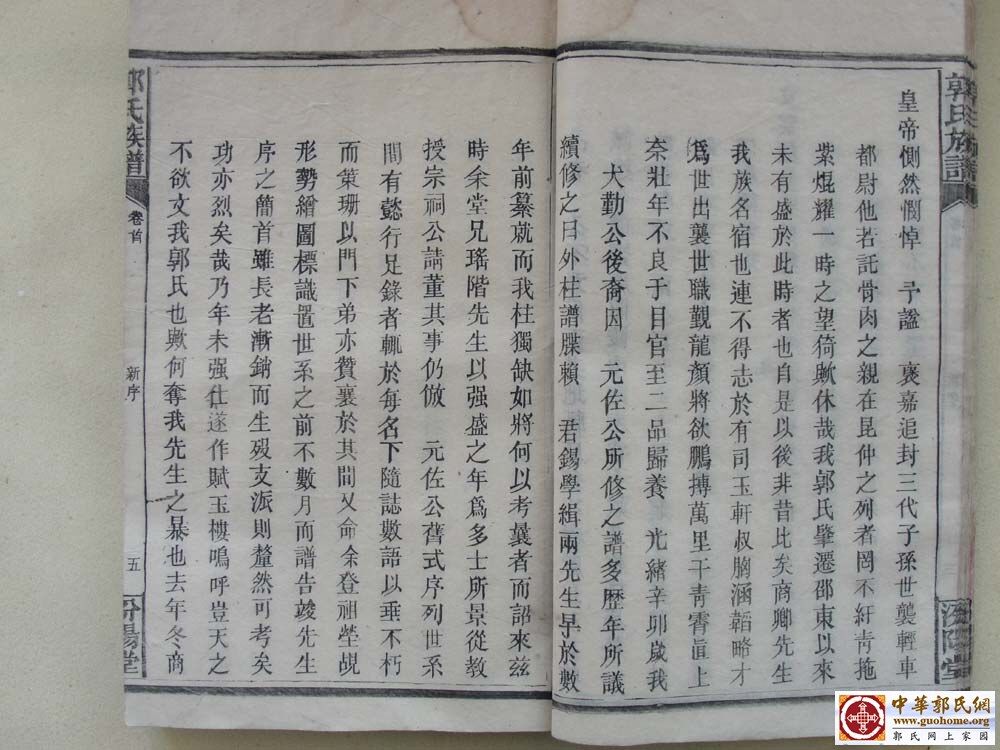 郭氏族譜
汾陽堂
皇帝惻然憫悼 予諡 褒嘉追封三代子孫世襲輕車
都尉他若託骨肉之親在昆仲之列者罔不紆靑拖
紫焜耀一時之望猗歟休哉我郭氏肇遷邵東以來
未有盛於此時者也自是以後非昔比矣商卿先生
我族名宿也連不得志於有司玉軒叔胸涵韜略才
爲世出襲世職觀龍顏將欲鵬搏萬里干靑霄直上
奈壯年不良于目官至二品歸養 光緒辛卯歲我
大勤公後裔因 元佐公所修之譜多歷年所議
續修之日外柱譜牒賴 君錫學緝兩先生早於數
年前纂就而我柱獨缺如將何以考曩者而詔來茲
時余堂兄瑤階先生以强盛之年爲多士所景從敎
授宗祠公請董其事仍倣 元佐公舊式序列世系
間有懿行足錄者輒於每名下隨誌數語以垂不朽
而策珊以門下弟亦贊襄於其間又命余登祖塋覘
形勢繪圖標識置世系之前不數月而譜告竣先生
序之簡首雖長老漸銷而生歿支派則釐然可考矣
功亦烈矣哉乃年未强仕遂作賦玉樓嗚呼豈天之
不欲文我郭氏也歟何奪我先生之暴也去年冬商
郭氏族譜
卷首
新序
五
汾陽堂
中華郭氏網
www.guohome.org
郭氏网上家园